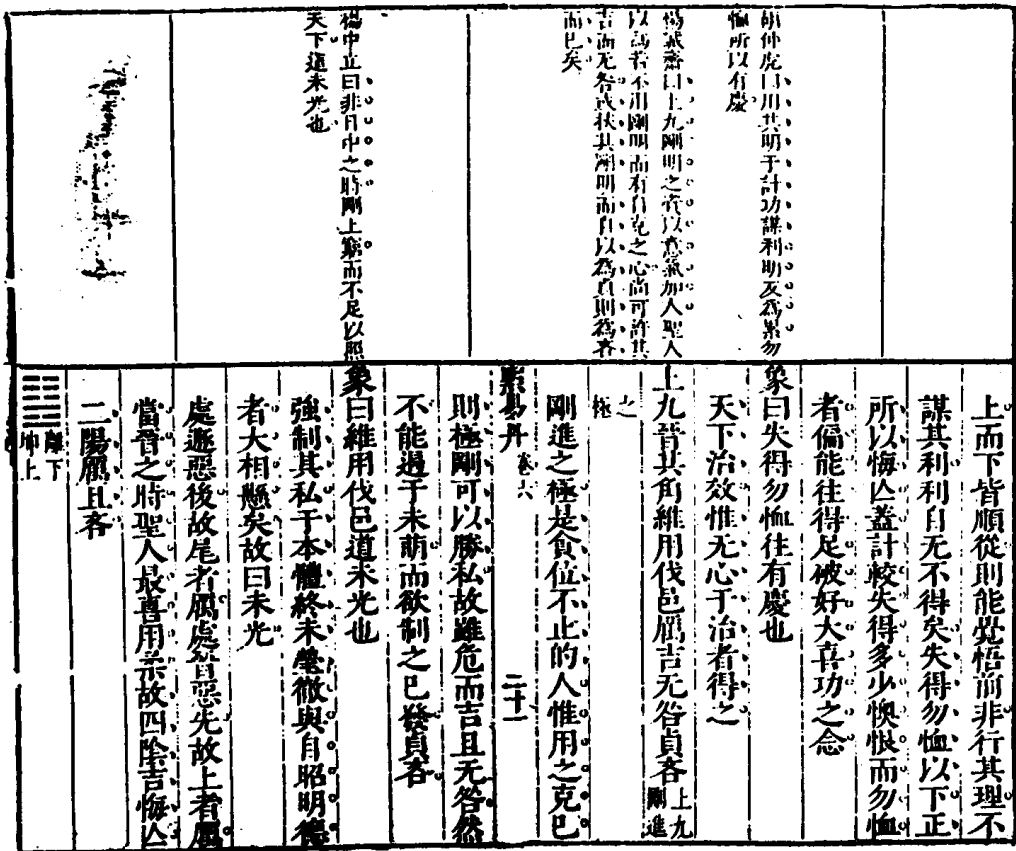 胡仲虎曰用其明于計功謀利明反為累勿
恤所以有慶
楊誠齋曰上九剛明之資以意氣加人聖人
以為若不用剛明而有自克之心尚可許其
吉而无咎或狀其剛明而自以為貞則為吝
而已矣
楊中立曰非日中之時剛上窮而不足以照
天下道未光也
上而下皆順從則能覺悟前非行其理不
謀其利利自无不得矣失得勿恤以下正
所以悔亾蓋計較失得多少懊恨而勿恤
者偏能往得足破好大喜功之念
象曰失得勿恤往有慶也
天下治效惟无心于治者得之
上九晉其角維用伐邑厲吉无咎貞吝 上九剛進
之極
剛進之極是貪位不止的人惟用之克已
易丹 卷六 二十一
則極剛可以勝私故雖危而吉且无咎然
不能過于未萌而欲制之已發貞吝
象曰維用伐邑道未光也
強制其私于本體終未瑩徹與自昭明德
者大相懸矣故曰未光
處遯惡後故尾者厲處晉惡先故上者厲
當晉之時聖人最喜用柔故四陰吉悔亾
二陽厲且吝
離下
坤上